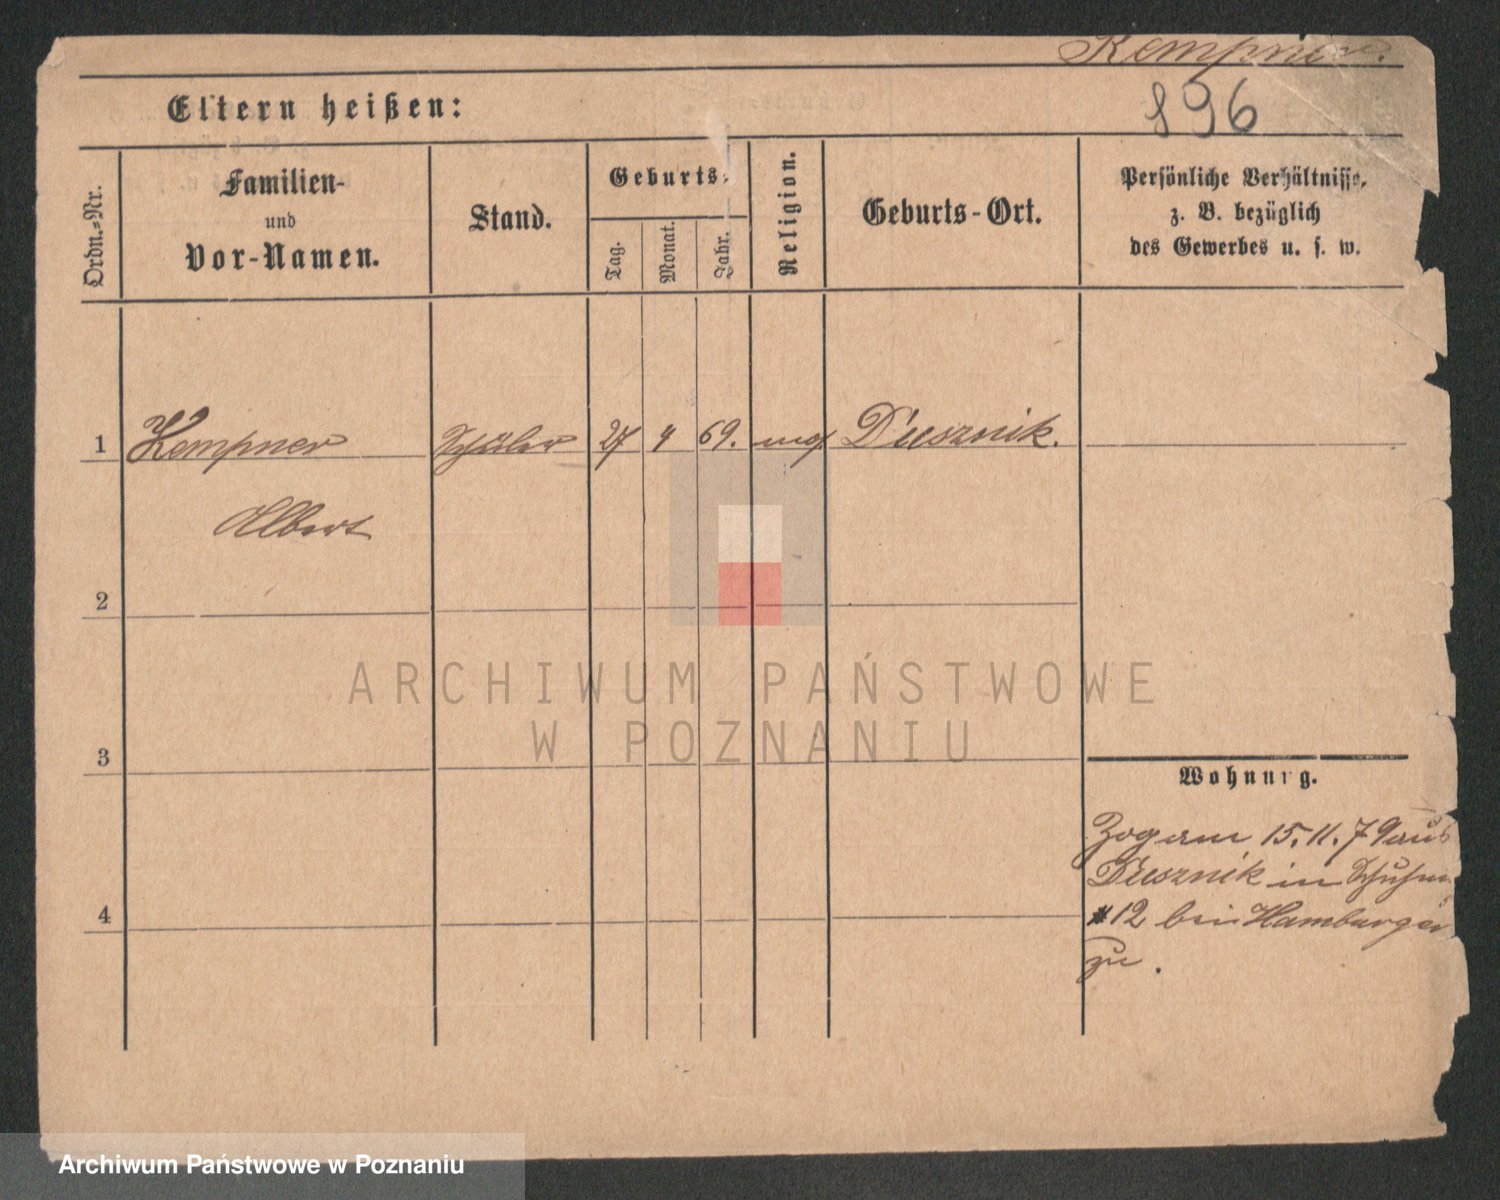 Kempner.
896
Eltern heißen:
Ordn.-Nr.
Familien-
und
Vor-Namen.
Stand.
Geburts-
Tag.
Monat.
Jahr.
Religion.
Geburts-Ort.
Persönliche Verhältnisse,
z. B. bezüglich
des Gewerbes u. s. w.
1 Kempner Schüler 27 4 69. mos. Dusznik.
Albert
2
3
4
Wohnung.
Zog am 15. 11. 79 aus
Dusznik in Schuhm
#12 bei Hamburger
zu.
ARCHIWUM PAŃSTWOWE
W POZNANIU
Archiwum Państwowe w Poznaniu